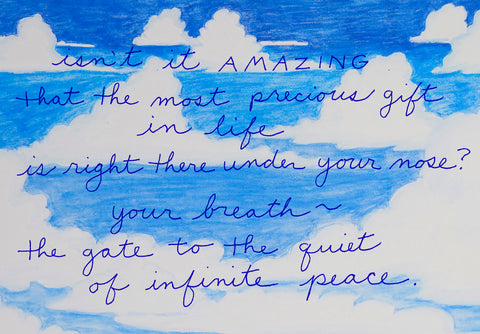 isn't it AMAZING
that the most precious gift
in life
is right there under your nose?
your breath ~
the gate to the quiet
of infinite peace.